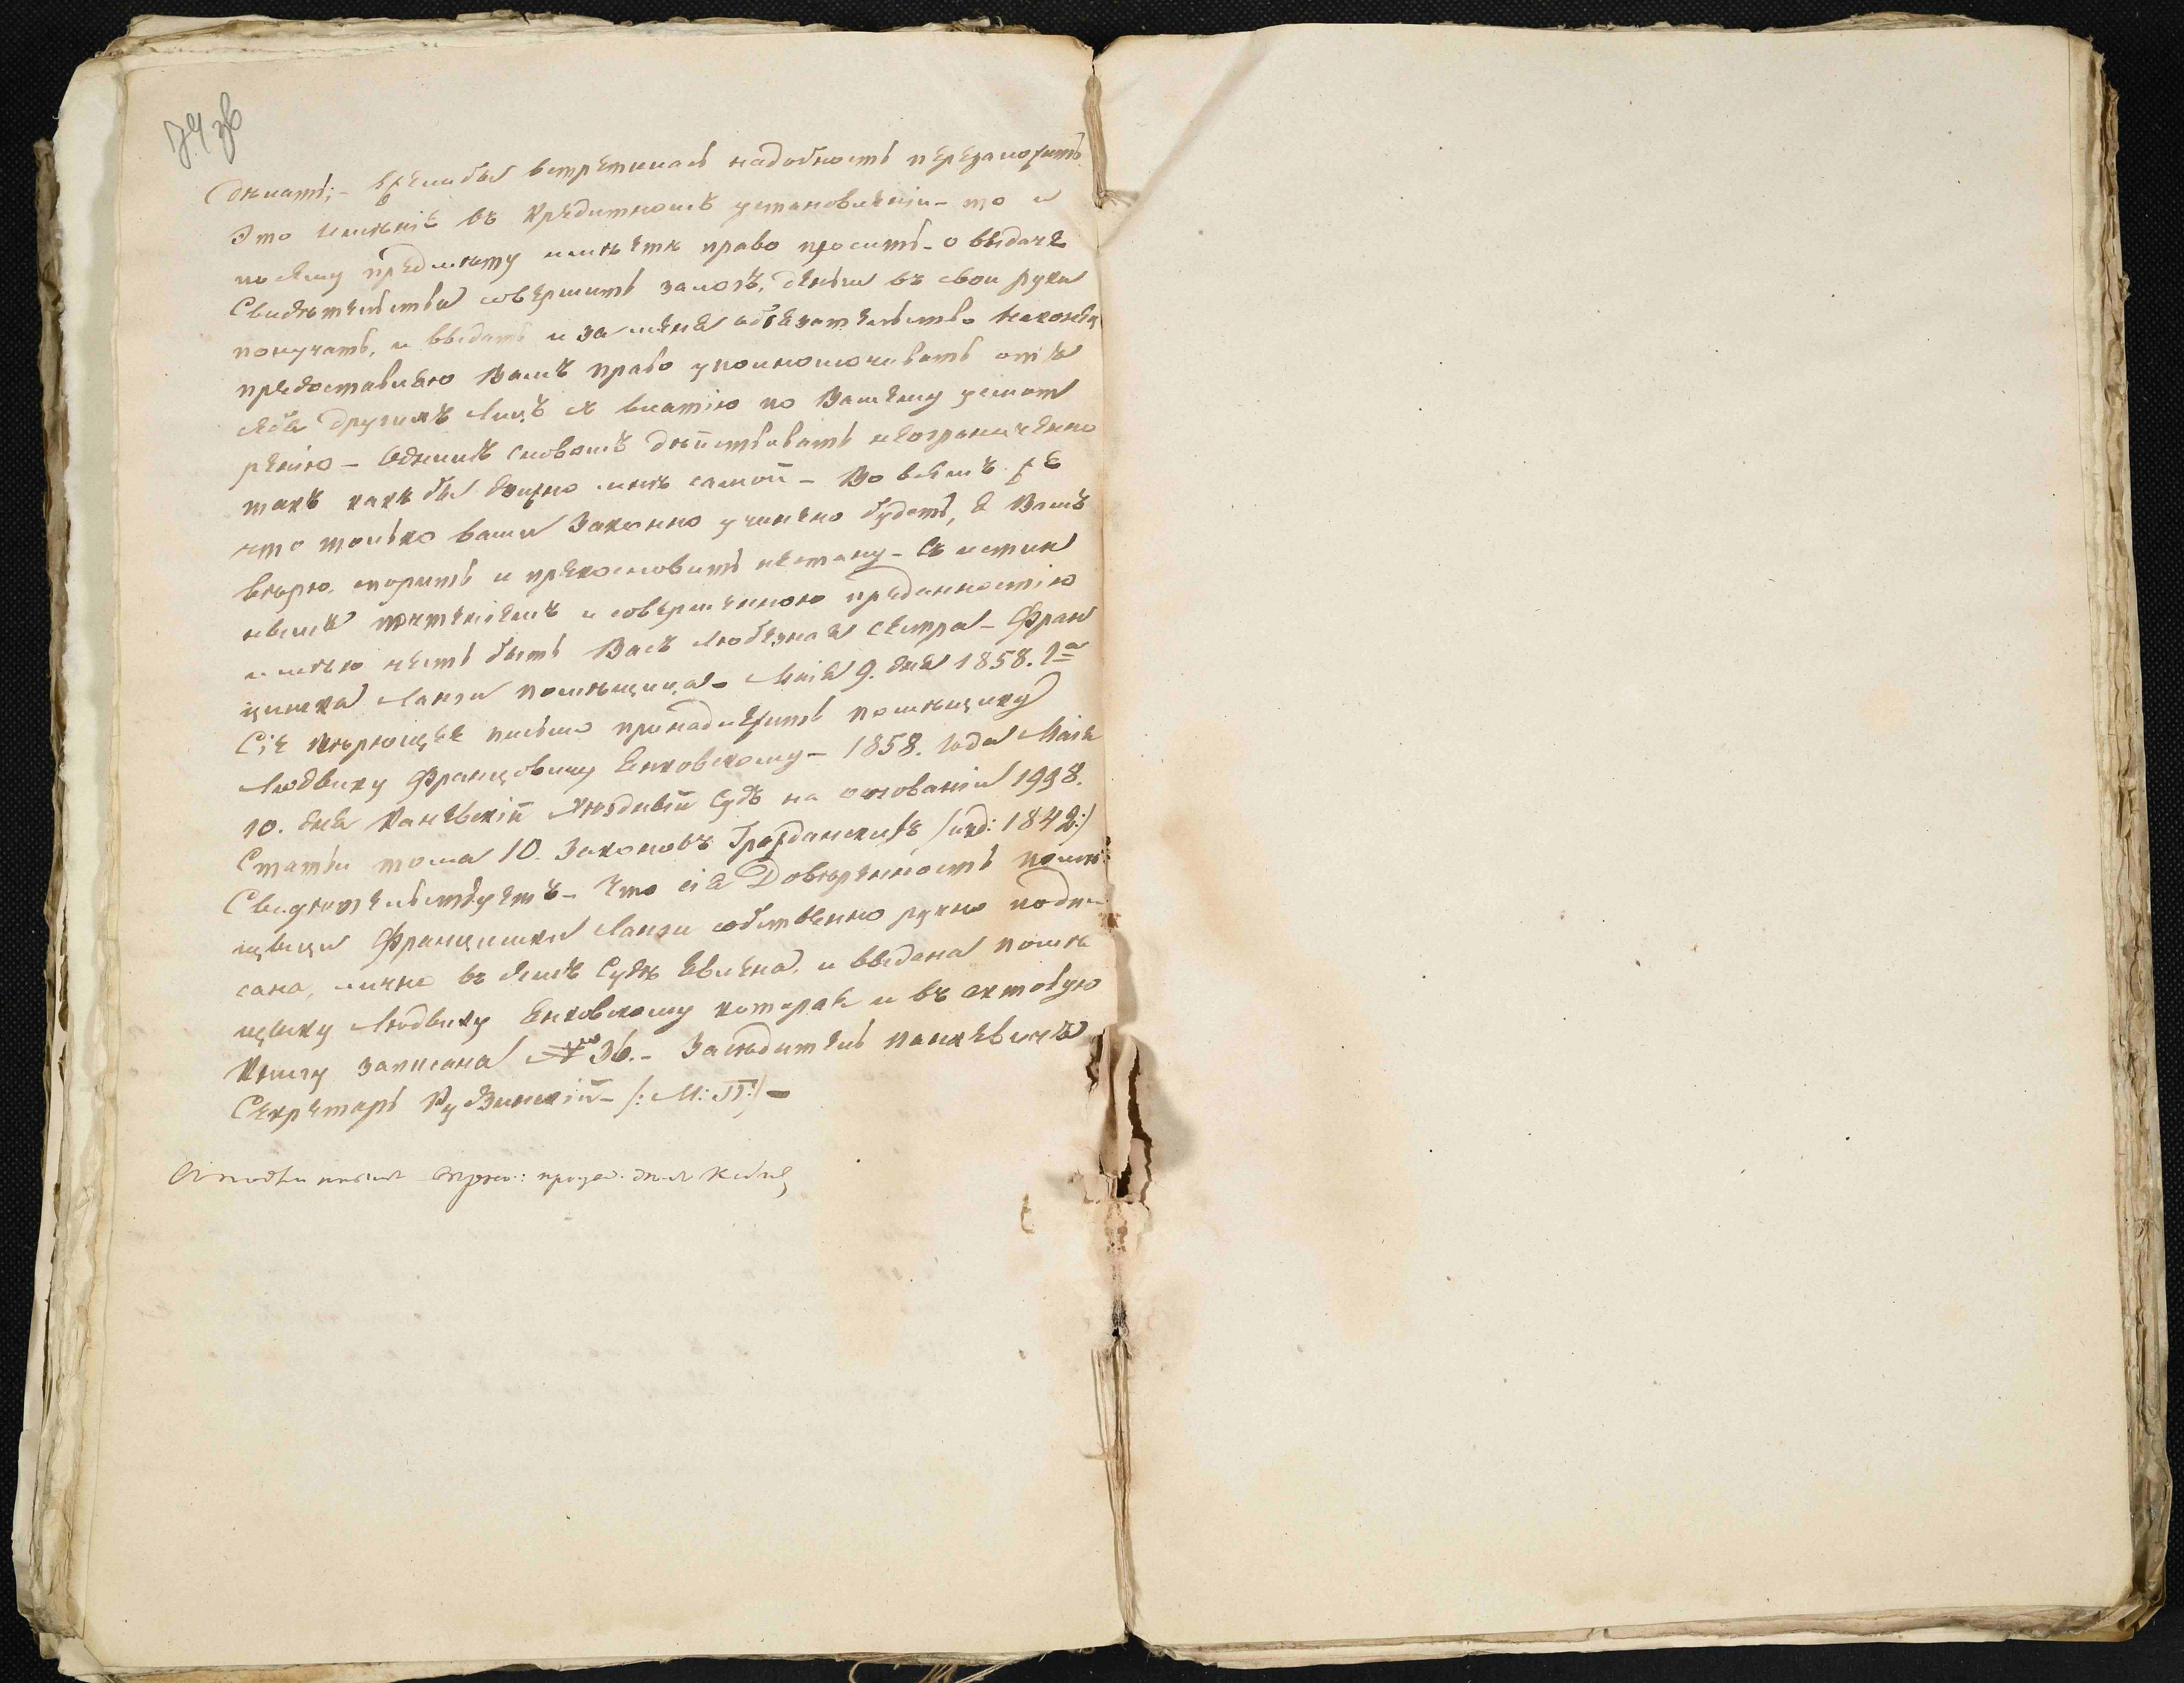 дѣлать; – Ежелибы встретилась надобность перезаложить
Это имѣніе въ Кредитномъ установленіи – то и
по сему предмѣту имѣетѣ право просить – о выдаче
Свидѣтельства совершить залогъ, деньги въ свои руки
получать, и выдать и за меня обязательство Наконецъ
предоставляю Вамъ право уполномочивать отъ
себя другихъ Лицъ къ внятію по Вашему усмот
рению – Однимъ словомъ дѣйствовать неограниченно
такъ какъ бы должно мнѣ самой – Во всемъ же
что только вами Законно учинено будетъ, я Вамъ
вѣрю, спорить и прекословить нестану – Съ истин
нымъ почтеніемъ и совершенною преданностію
имѣю честь быть Васъ любезная сестра – Фран
цишка Ланги помѣщица – Маія 9. дня 1858. Го
Сіе вѣрющее письмо принадлежитъ помѣщику
Людвику Францовичу Янковскому – 1858. года Маія
10. дня Каневскій Уѣздный Судъ на основаніи 1998.
Статьи тома 10. Законовъ Гражданскихъ /изд: 1842:/
Свидѣтельствуетъ – Что сія Довѣренность помѣ
щицы Францишки Ланги собственно ручно подпи
сана, лично въ семъ Судѣ явлена, и выдана помѣ
щику Людвику Янковскому которая и въ актовую
Книгу записана № 36. – Засѣдатель
Секретарь Рудзинскій – /: М: П:/ –